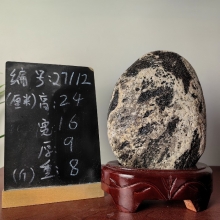 编号:27112
(厘米)高:24
宽:16
厚:9
(斤)重:8